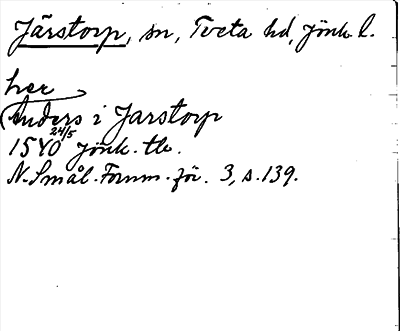 Järstorp, sn, Tveta hd, Jönk. l.
her
Anders i Jarstorp
1540 24/5 Jönk. tb.
N. Smål. Fornm. för. 3, s. 139.